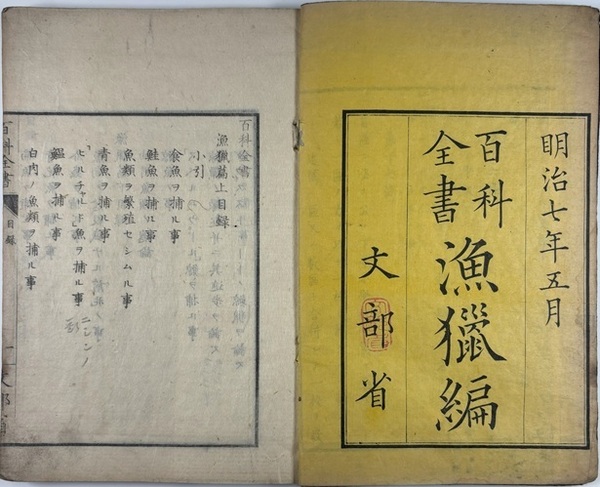 明治七年五月
百科全書
漁獵編
文部省
百科全書
漁獵篇上目録
小引
食魚ヲ捕ル事
鮭魚ヲ捕ル事
魚類ヲ繁殖セシムル事
青魚ヲ捕ル事
「ピルチャルド」魚ヲ捕ル事
鰮魚ヲ捕ル事
白肉ノ魚類ヲ捕ル事
百科全書
目録